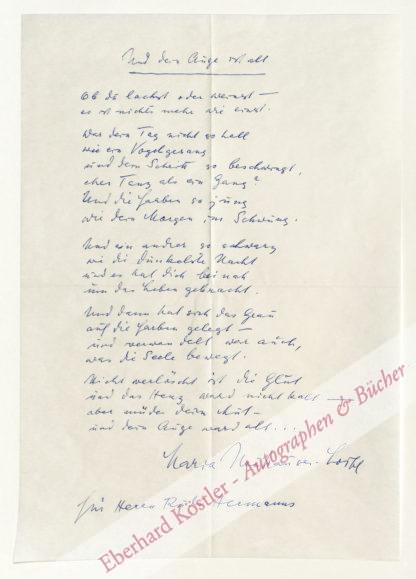 Und dein Auge ist alt
Ob du lachst oder weinst –
es ist nichts mehr wie einst.
War dein Tag nicht so hell
wie ein Vogelgesang
und dein Schritt so beschwingt,
eher Tanz als ein Gang?
Und die Farben so jung
wie dein Morgen im Schwung.
Und ein andrer so schwarz
wie die dunkelste Nacht
und es hat dich beinah
um das Leben gebracht.
Und dann hat sich das Grau
auf die Farben gelegt –
und verwandelt war auch,
was die Seele bewegt.
Nicht verlöscht ist die Glut
und das Herz ward nicht kalt –
aber müde dein Mut –
und dein Auge ward alt...
Maria
für Herrn Hermanns
Eberhard Köstler - Autographen & Bücher